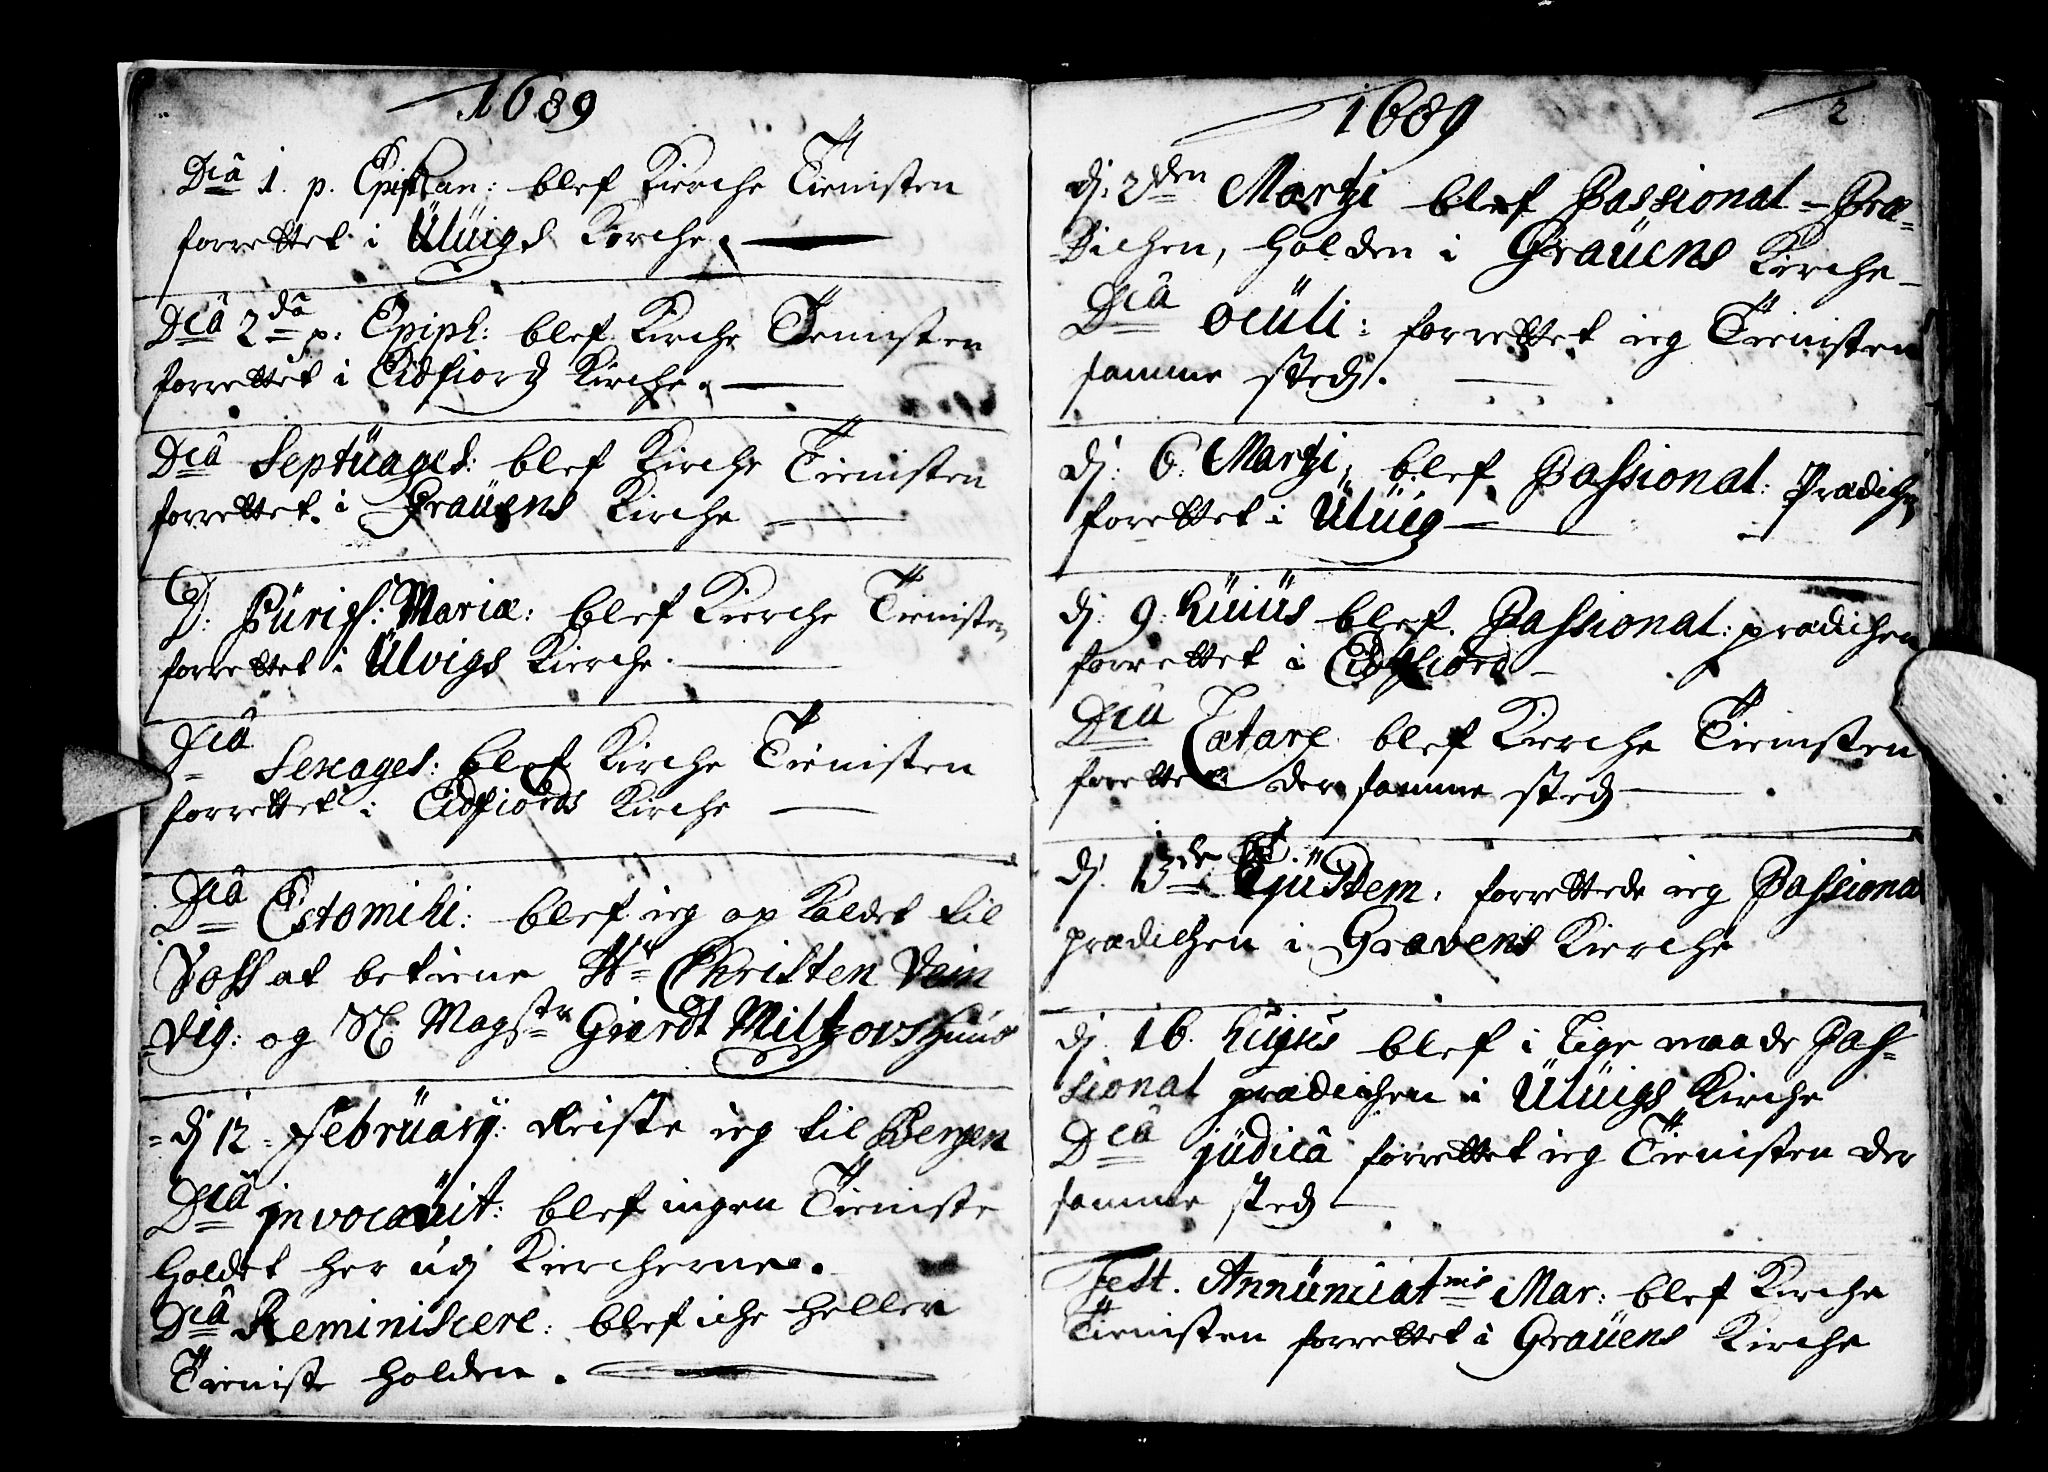 1689
Dcâ 1. p. Epiphan: blef Kierche Tienisten
forrettet i Ülüigs Kirche.
Dcâ 2dâ p: Epiph: blef Kirche Tienisten
forrettet i Eidfiordz Kirche.
Dcâ Septüages: blef Kirche Tienisten
forrettet i Graüens Kirche
D: Pürif: Mariæ: blef Kierche Tienisten
forrettet i Ülvigs Kierche.
Dcâ Sexages: blef Kirche Tienisten
forrettet i Eidfiords Kirche
Dcâ Estomihi: blef ieg op kaldet til
Voss at betiene Hr Christen Wein
wig: og Sl: Magstr Gierdt Miltzovs Huus
dj 12 Febrüarij: Reiste ieg til Bergen
Dcâ jnvocavit: blef ingen Tieniste
holdet her udj Kircherne.
Dcâ Reminiscere: blef iche heller
Tieniste holden.
1689
2
dj: 2den Martzi blef Passional-Præ-
dichen, holden i Graüens Kirche
Dcâ Oculi: forrettet ieg Tienisten
samme stedz.
dj: 6: Martzi, blef Passional: Prædichen
forrettet i Ülüig
dj: 9: hüiüs blef Passional: prædichen
forrettet i Eidfiord
Dcâ Lætare blef Kirche Tienisten
forrettet der samme stedz
dj. 13de Ejüsdem, forrettede ieg Passional
prædichen i Gravens Kierche
dj. 16. hujus blef i lige maade Pas-
sional prædichen i Ülüigs Kirche
Dcâ jüdicâ forrettet ieg Tienisten der
samme stedz
Fest. Annünciatnis Mar: blef Kirche
Tienisten forrettet i Graüens Kirche